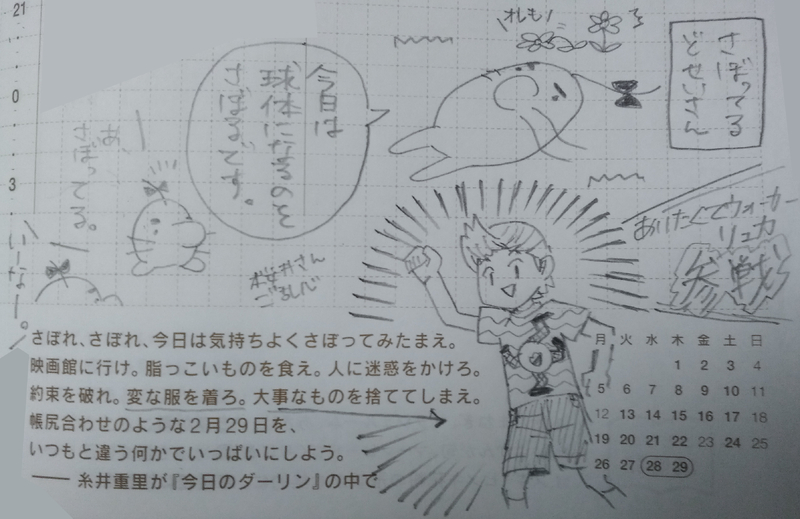 21
0
3
オレも!
さぼってる
どせいさん
今日は
球体になるのを
さぼるです。
あ、
さぼってる。
いーなー。
あいたくてウォーカー
リュカ
参戦
さぼれ、さぼれ、今日は気持ちよくさぼってみたまえ。
映画館に行け。脂っこいものを食え。人に迷惑をかけろ。
約束を破れ。変な服を着ろ。大事なものを捨ててしまえ。
帳尻合わせのような2月29日を、
いつもと違う何かでいっぱいにしよう。
── 糸井重里が『今日のダーリン』の中で
月 火 水 木 金 土 日
1 2 3 4
5 6 7 8 9 10 11
12 13 14 15 16 17 18
19 20 21 22 23 24 25
26 27 28 29